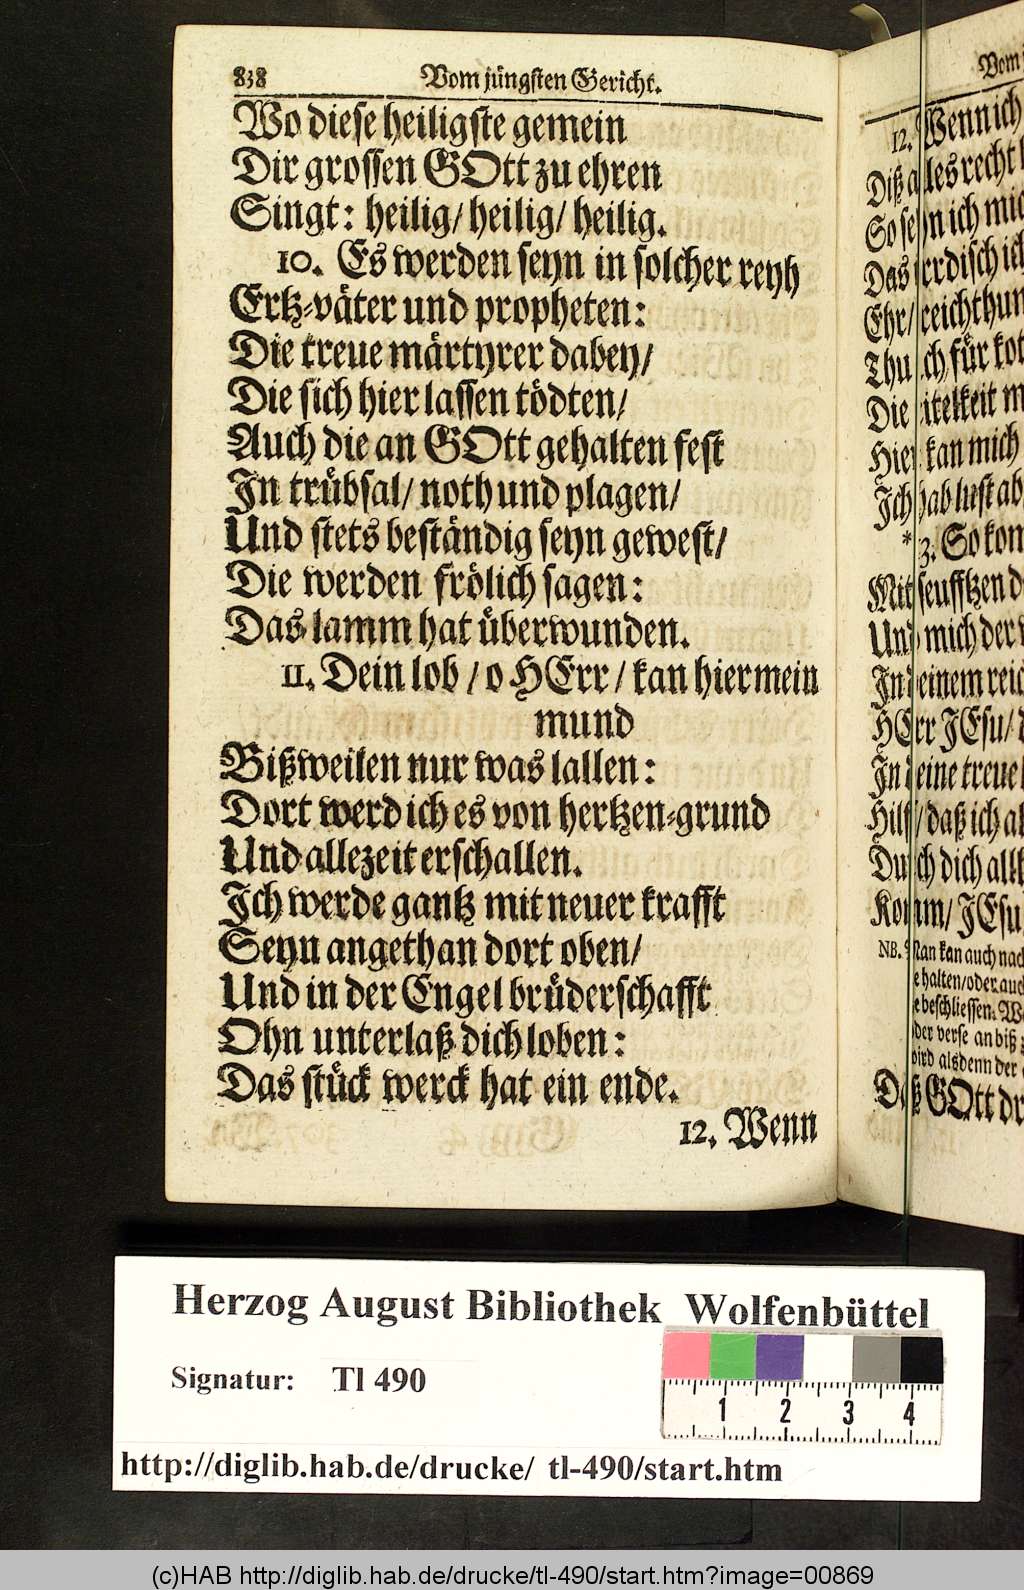 838 Vom jüngsten Gericht.
Wo diese heiligste gemein
Dir grossen GOtt zu ehren
Singt: heilig/ heilig/ heilig.
10. Es werden seyn in solcher reyh
Ertz-väter und propheten:
Die treue märtyrer dabey/
Die sich hier lassen tödten/
Auch die an GOtt gehalten fest
In trübsal/ noth und plagen/
Und stets beständig seyn gewest/
Die werden frölich sagen:
Das lamm hat überwunden.
11. Dein lob / o HErr / kan hier mein
mund
Bißweilen nur was lallen:
Dort werd ich es von hertzen-grund
Und allezeit erschallen.
Ich werde gantz mit neuer krafft
Seyn angethan dort oben/
Und in der Engel brüderschafft
Ohn unterlaß dich loben:
Das stück werck hat ein ende.
12. Wenn
Vom
12. Wenn ich
Diß alles recht
So sehn ich mich
Das irrdisch
Ehr/ reichthum
Thu ich für kot
Die eitelkeit
Hier kan mich
Ich hab lust ab
*
3. So kom
Mit seufftzen
Und mich der
In deinem reich
HErr JEsu/
In deine treue
Hilff/ daß ich
Durch dich
Komm/ JEsu
NB. Man kan auch nach
halten/ oder auch
beschliessen.
der verse an biß
wird alsdenn der
Daß GOtt
Herzog August Bibliothek Wolfenbüttel
Signatur: Tl 490
1 2 3 4
http://diglib.hab.de/drucke/ tl-490/start.htm
(c)HAB http://diglib.hab.de/drucke/tl-490/start.htm?image=00869